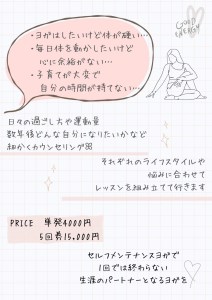 GOOD ENERGY
・ヨガはしたいけど体が硬い…
・毎日体を動かしたいけど
心に余裕がない…
・子育てが大変で
自分の時間が持てない…
日々の過ごし方や運動量
数年後どんな自分になりたいかなど
細かくカウンセリング
それぞれのライフスタイルや
悩みに合わせて
レッスンを組み立てて行きます
PRICE 単発4000円
5回券15,000円
セルフメンテナンスヨガで
1回では終わらない
生涯のパートナーとなるヨガを